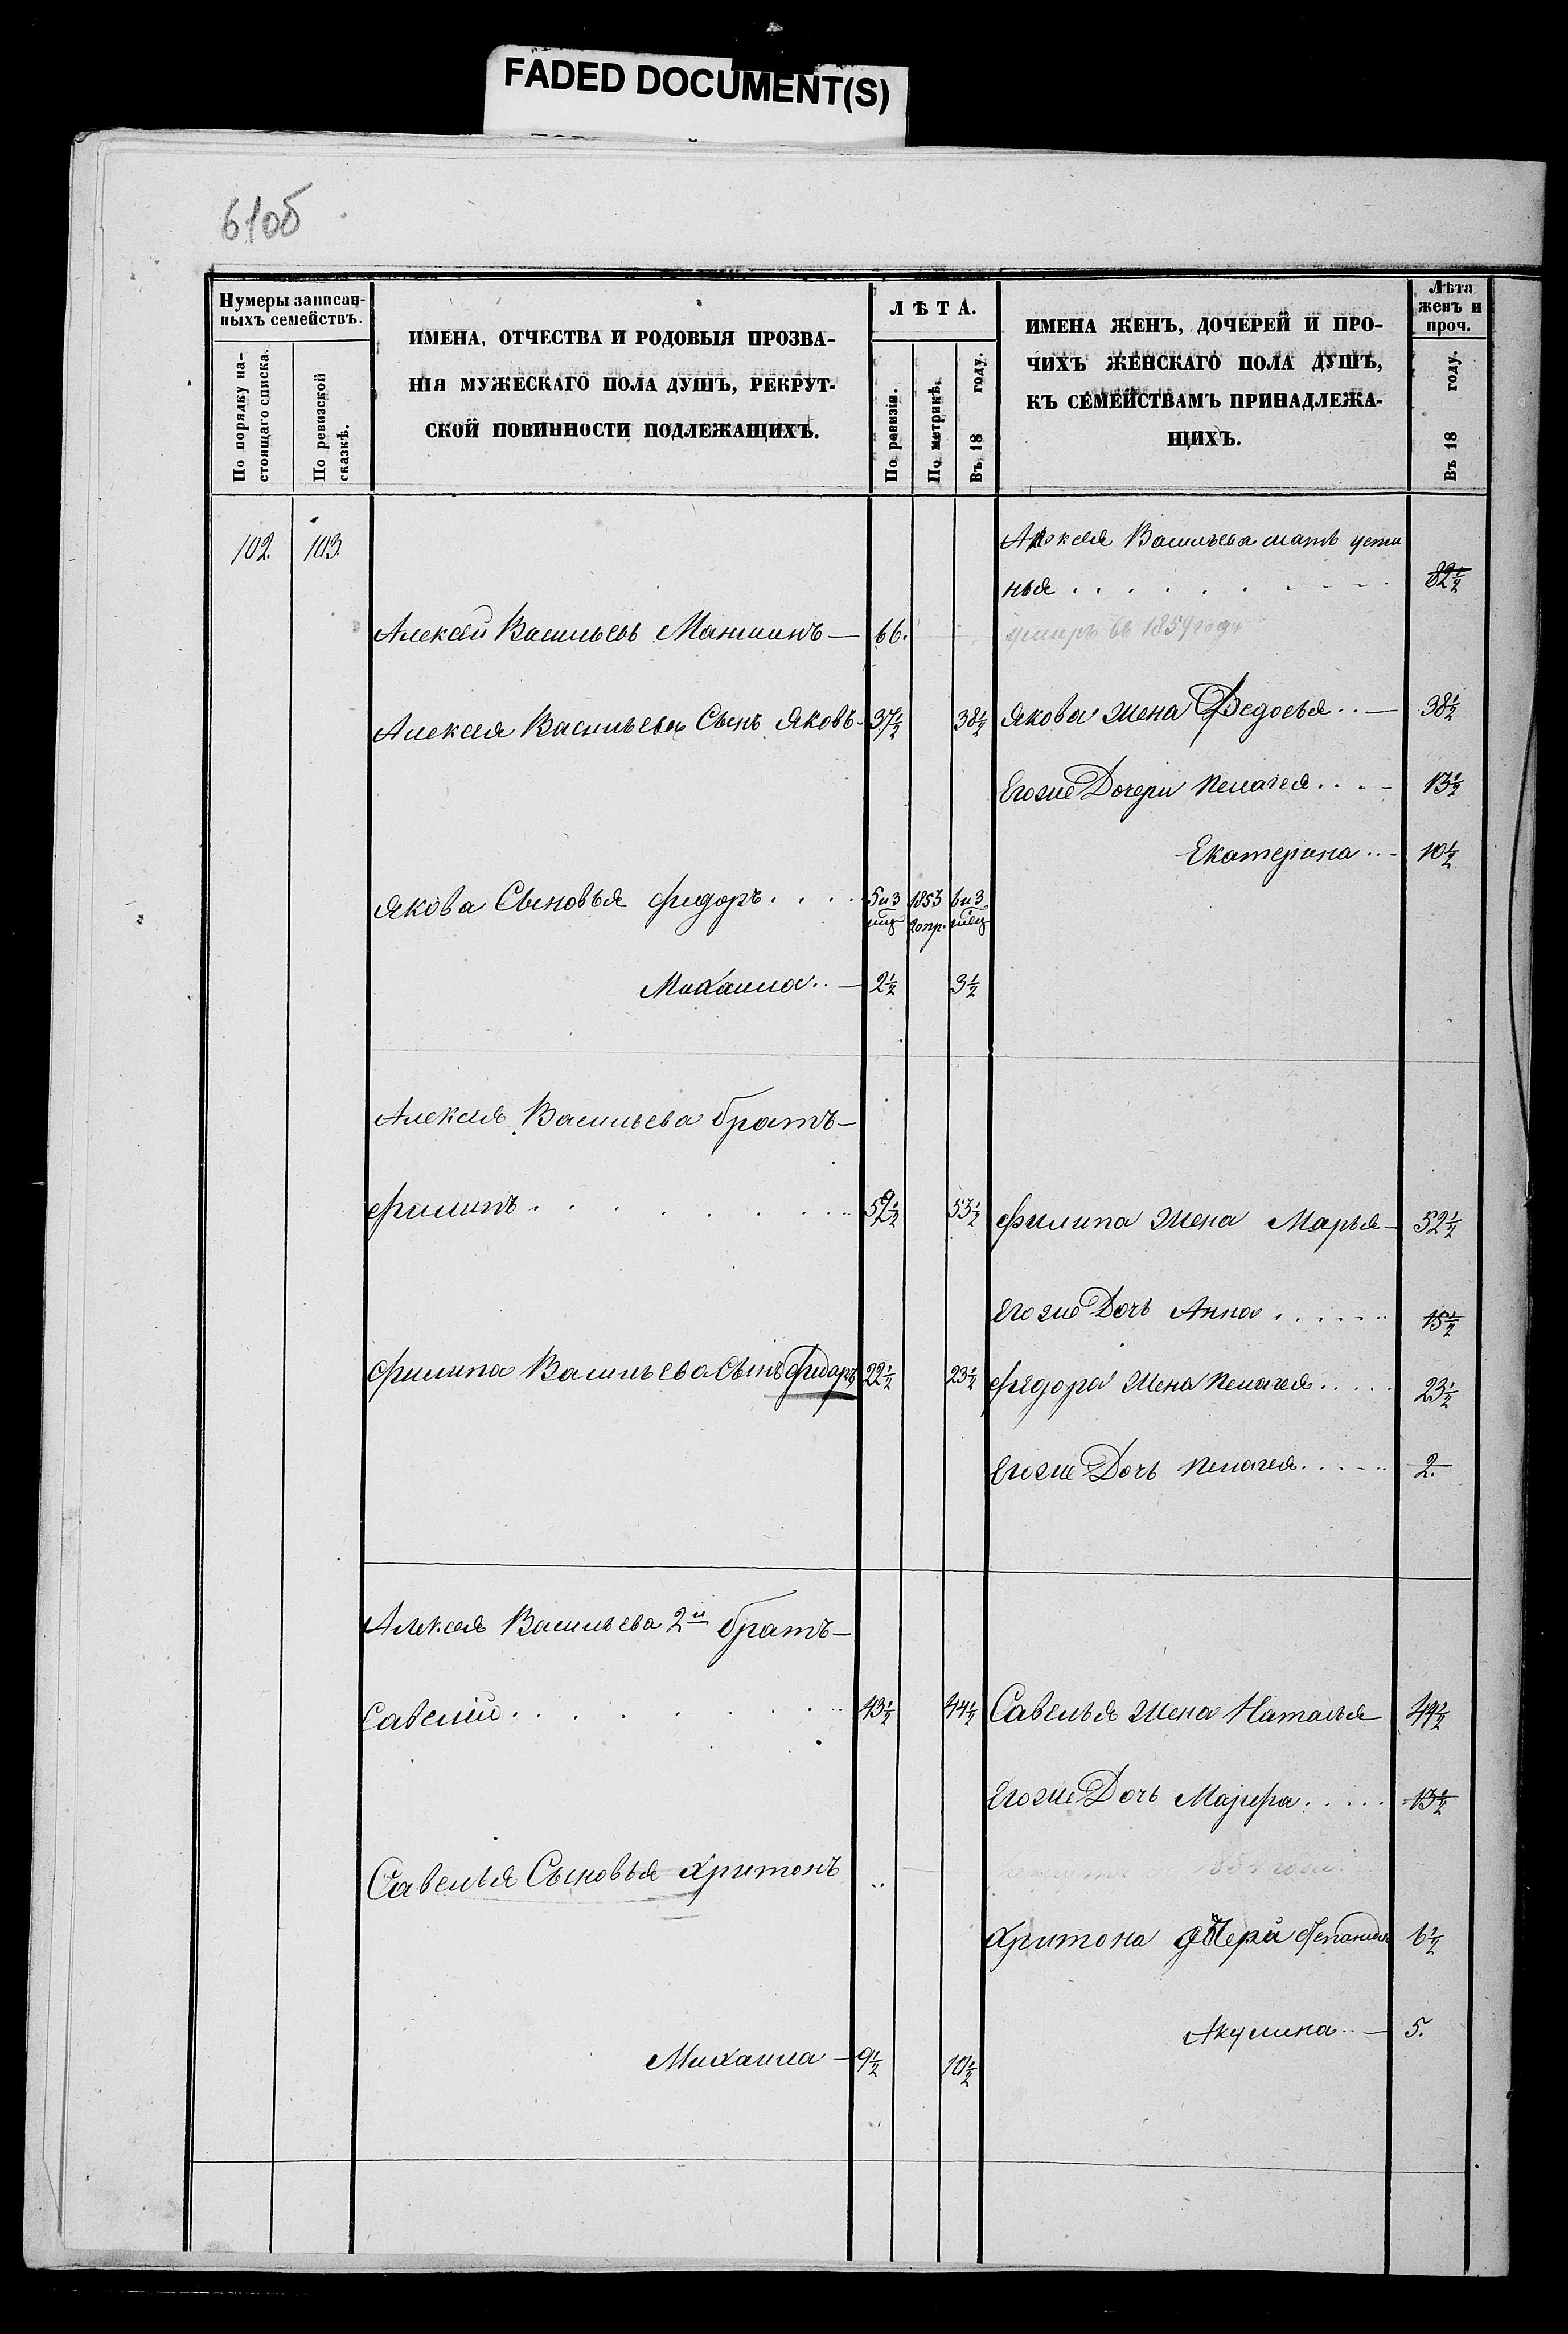 FADED DOCUMENT(S)
61об
Нумеры записан-
ныхъ семействъ.
По порядку на-
стоящаго списка.
По ревизской
сказкѣ.
ИМЕНА, ОТЧЕСТВА И РОДОВЫЯ ПРОЗВА-
НІЯ МУЖЕСКАГО ПОЛА ДУШЪ, РЕКРУТ-
СКОЙ ПОВИННОСТИ ПОДЛЕЖАЩИХЪ.
ЛѢТА.
По ревизіи.
По метрикѣ.
Въ 18 году.
ИМЕНА ЖЕНЪ, ДОЧЕРЕЙ И ПРО-
ЧИХЪ ЖЕНСКАГО ПОЛА ДУШЪ,
КЪ СЕМЕЙСТВАМЪ ПРИНАДЛЕЖА-
ЩИХЪ.
Лѣта
женъ и
проч.
Въ 18 году.
102. 103. Алексея Васильева мать усти
нья 82½
Алексѣй Васильевъ 66. умиръ въ 1859 году
Алексея Васильева Сынъ Яковъ 37½ 38½ Якова жена Федосья 38½
Егоже Дочери пелагея 13½
Екатерина 10½
Якова Сыновья федоръ 5 и 3 1853 6 и 3
мец
Михаила 2½ 3½
Алексея Васильева братъ
филипъ 52½ 53½ филипа жена Марья 52½
Егоже Дочь Анна 15½
филипа Васильева Сынъ федоръ 22½ 23½ федора жена пелагея 23½
Егоже Дочь пелагея 2.
Алексея Васильева 2й братъ
Савелій 43½ 44½ Савелья жена Наталья 49½
Егоже Дочь 13½
Савелья Сыновья Хритонъ
Хритона Степанида 6½
Акулина 5.
Михаила 9½ 10½